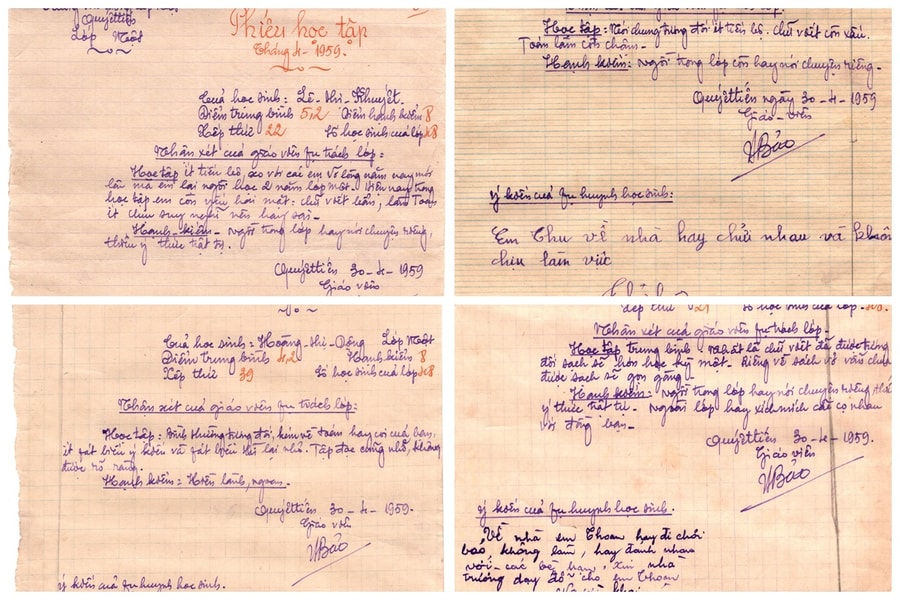 Quyết tiến
Lớp Một
Phiếu học tập
Tháng 4 - 1959.
Của học sinh: Lê - thị - Khuyết.
Điểm trung bình 5,2 Điểm hạnh kiểm 8
Xếp thứ 22 Số học sinh của lớp 48
Nhận xét của giáo viên fụ trách lớp:
Học tập ít tiến bộ so với các em vỡ lòng năm nay mới
lên mà em lại người học 2 năm lớp một. Hiện nay trong
học tập em còn yếu hai mặt: chữ viết bẩn, làm Toán
ít chịu suy nghĩ nên hay sai.
Hạnh - kiểm - Ngồi trong lớp hay nói chuyện riêng,
thiếu ý thức trật tự.
Quyết tiến 30 - 4 - 1959
Giáo viên
Học tập: Nói chung tương đối ít tiến bộ. chữ viết còn xấu.
Toán làm còn chậm.
Hạnh kiểm: Ngồi trong lớp còn hay nói chuyện riêng.
Quyết tiến ngày 30 - 4 - 1959
Giáo - viên
Bảo
ý kiến của fụ huynh học sinh:
Em Thu về nhà hay chửi nhau và không
chịu làm việc
Của học sinh: Hoàng - thị - Động Lớp Một
Điểm trung bình 4,2 Hạnh kiểm 8
Xếp thứ 39 Số học sinh của lớp 48
Nhận xét của giáo viên fụ trách lớp:
Học tập: Bình thường tương đối, kém về toán hay coi của bạn,
ít fát biểu ý kiến và fát biểu thì lại nhỏ. Tập đọc cũng nhỏ, không
được rõ ràng.
Hạnh kiểm: Hiền lành, ngoan.
Quyết tiến 30 - 4 - 1959.
Giáo viên
Bảo
ý kiến của fụ huynh học sinh.
Xếp thứ 21 Số học sinh của lớp 48
Nhận xét của giáo viên fụ trách lớp.
Học tập trung bình: Nhất là chữ viết đã được tương
đối sạch sẽ hơn học kỳ một. Riêng về sách vở vẫn chưa
được sạch sẽ gọn gàng.
Hạnh kiểm: Ngồi trong lớp hay nói chuyện riêng, thiếu
ý thức trật tự. Ngoài lớp hay xích mích cãi cọ nhau
với đồng bạn.
Quyết tiến 30 - 4 - 1959.
Giáo viên
Bảo
ý kiến của fụ huynh học sinh.
Về nhà em Thoan hay đi chơi
bảo, không làm, hay đánh nhau
với các bạn, xin nhà
trường dạy dỗ cho em Thoan